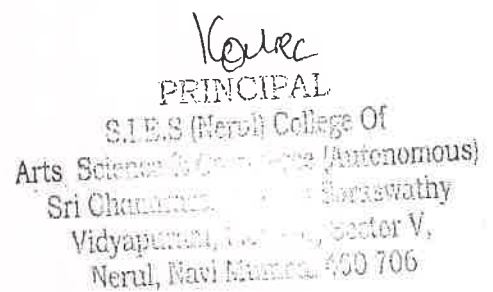 PRINCIPAL
S.I.E.S (Nerul) College Of
Arts, Science & Commerce (Autonomous)
Sri Saraswathy
Vidyapuram, Sector V,
Nerul, Navi Mumbai 400 706